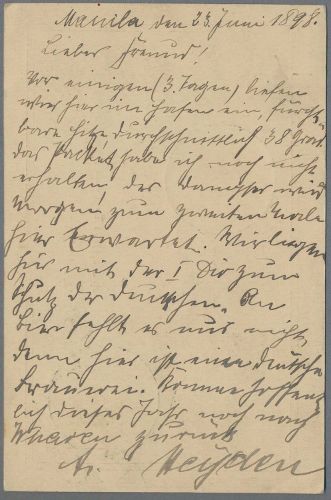 Manila den 23. Juni 1898.
Lieber Freund!
Vor einigen (3 Tagen) liefen
wir hier im Hafen ein, furcht-
bare Hitze durchschnittlich 38 Grad
das Packet habe ich noch nicht
erhalten, der Dampfer wird
morgen, zum zweiten Male
hier Erwartet. Wir liegen
hier mit der I Div zum
Schutz der Deutschen. An
Bier fehlt es uns nicht,
denn hier ist eine deutsche
Brauerei. Komme hoffent-
lich dieses Jahr noch nach
zurück
A. Heyden